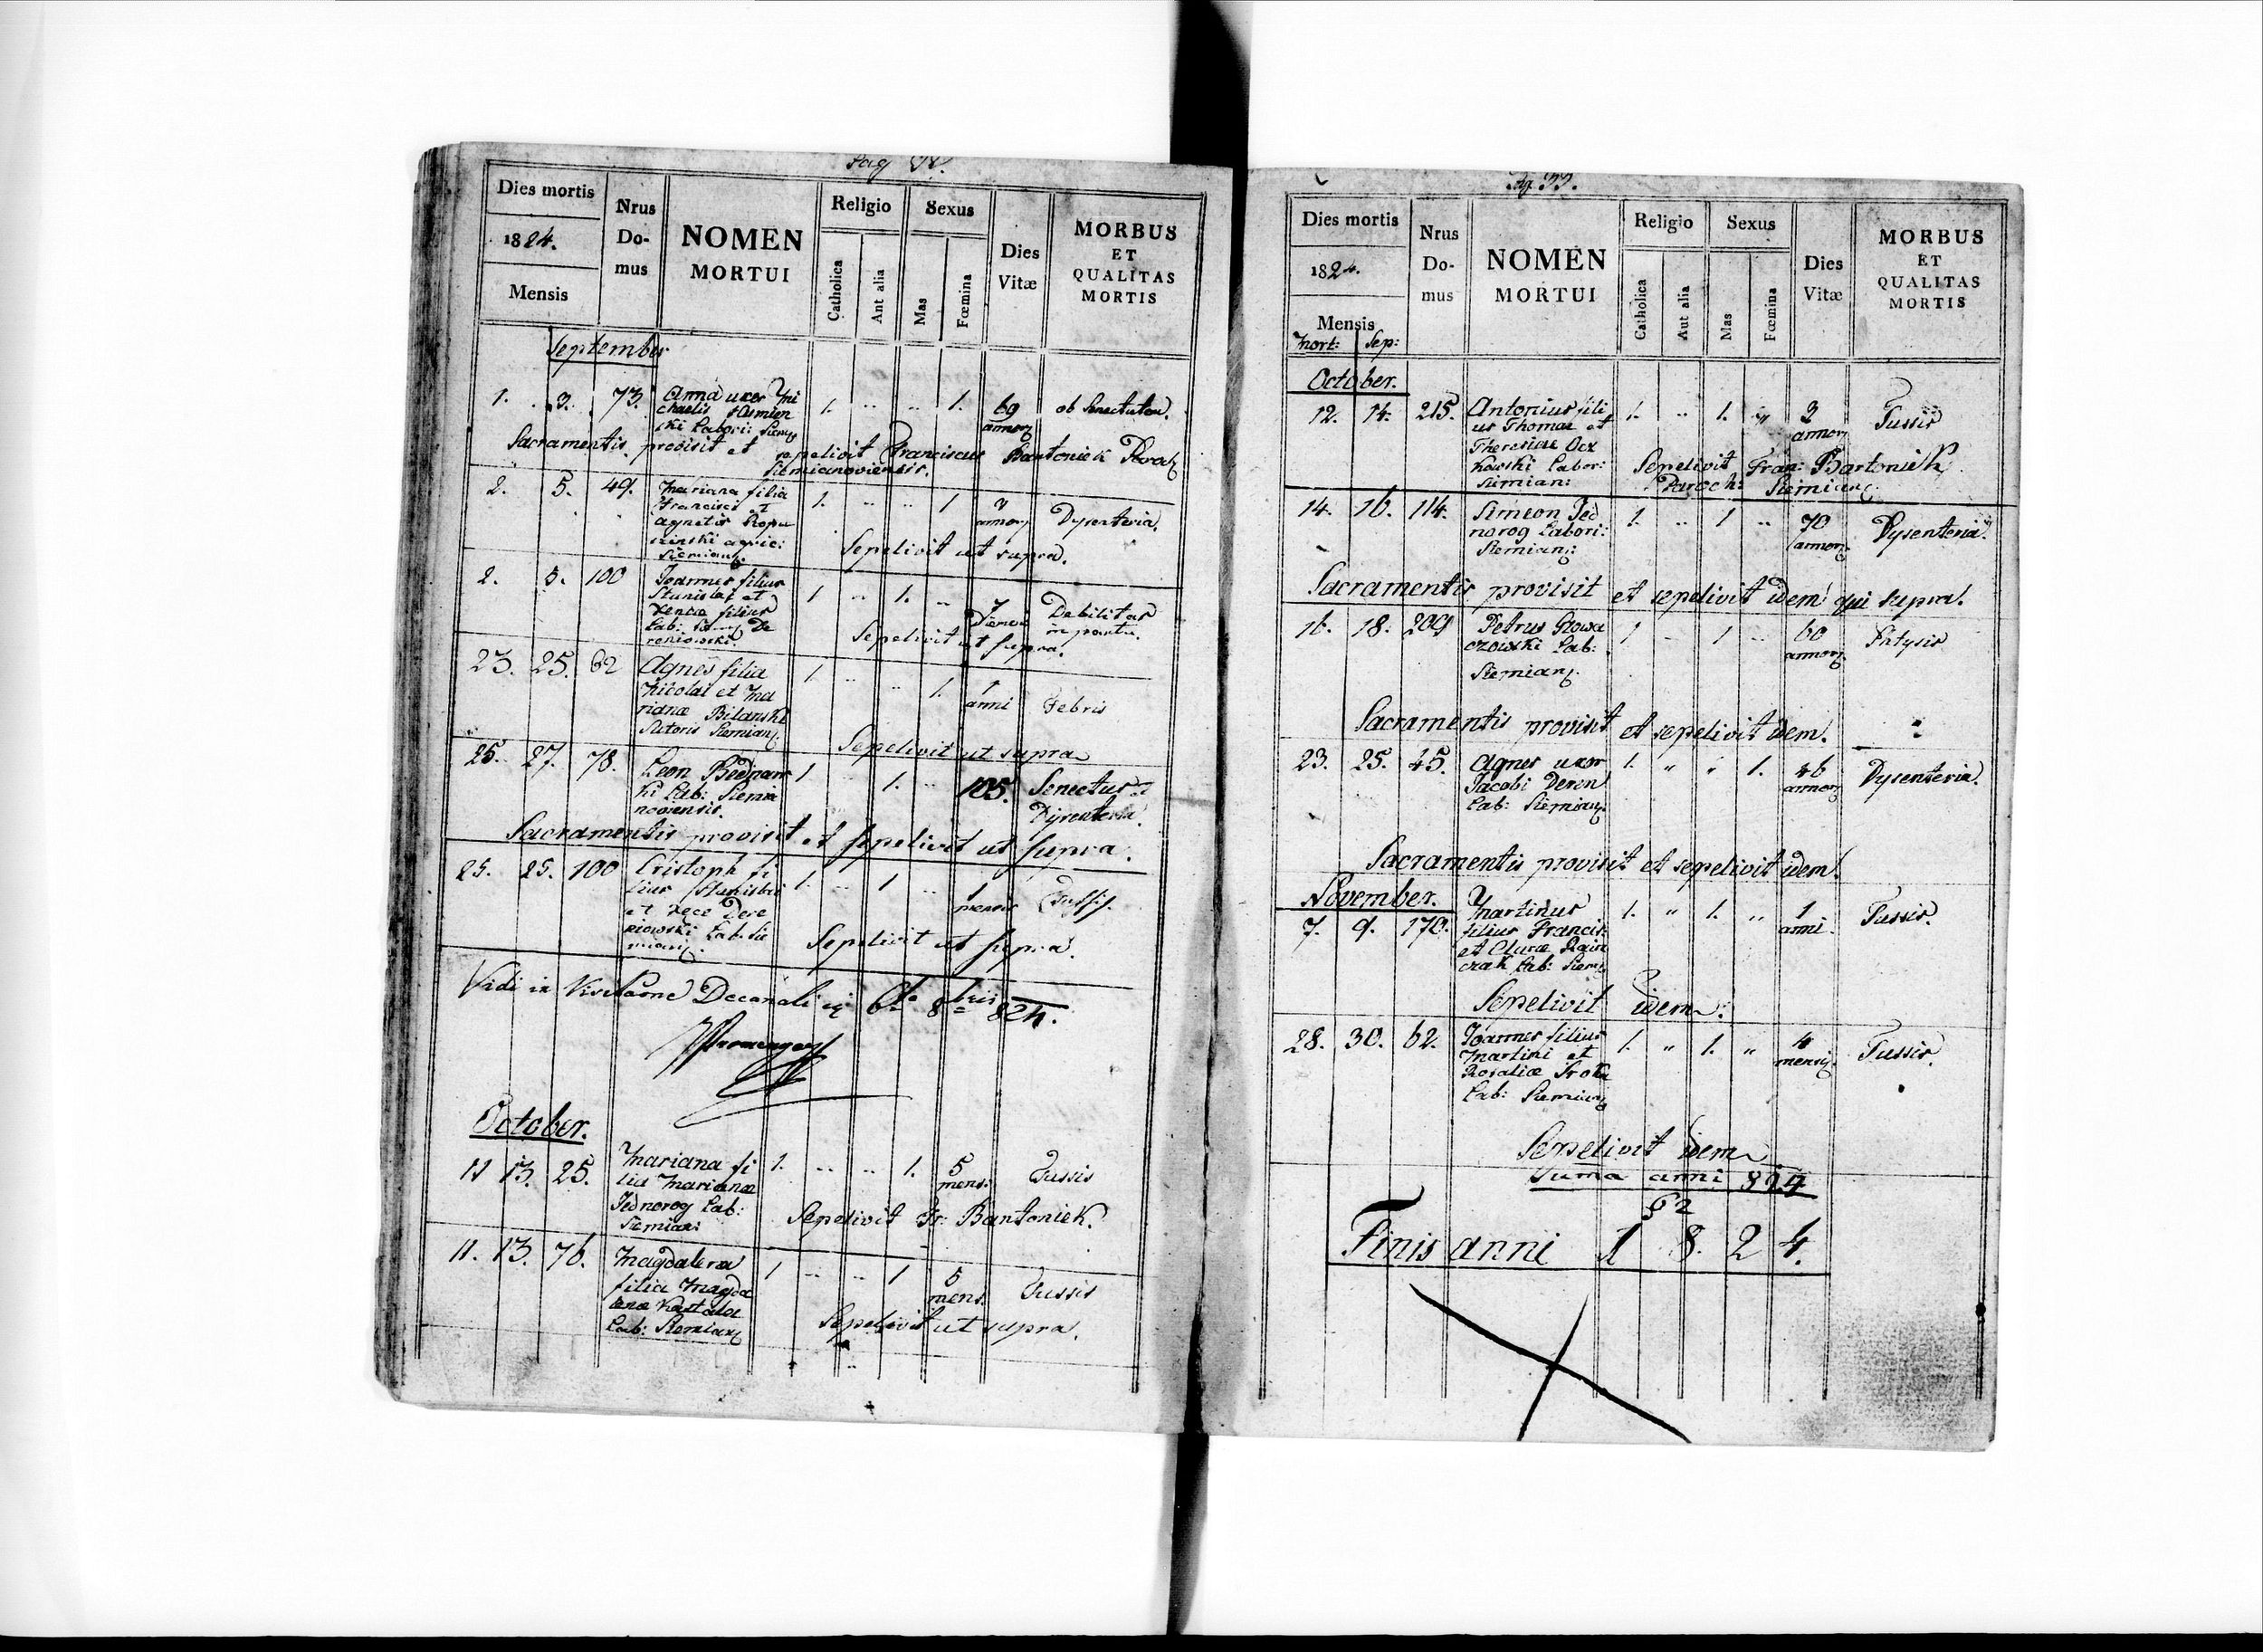 Pag
Dies mortis
1824.
Mensis
Nrus
Do-
mus
NOMEN
MORTUI
Religio
Catholica
Aut alia
Sexus
Mas
Fœmina
Dies
Vitæ
MORBUS
ET
QUALITAS
MORTIS
September
1. 3. 73. Anna uxor Mi 1. .. .. 1. 69 ob Senectutem.
chaelis annor
ski Labori: Siemę
Sacramentis provisit et sepelivit Franciscus Bartoniek Paroch
Siemianoviensis.
2. 5. 49. Mariana filia 1. .. .. 1 Dysenteria.
Francisci et annor
Agnetis
agric:
Siemianę Sepelivit ut supra.
2. 5. 100 Joannes filius 1 .. 1. .. 7 Debilitas
Stanislai et in partu.
filius
Lab: De
reniowski. Sepelivit ut supra.
23. 25. 62 Agnes filia 1 .. .. 1. 1 Febris
Nicolai et Ma anni
rianæ Bilanski
Sutoris Siemianę.
Sepelivit ut supra
25. 27. 78. Leon Bednars 1 .. 1. .. 105. Senectus et
ki Lab: Siemia Dysenteria.
noviensis.
Sacramentis provisit et sepelivit ut supra.
25. 25. 100 Cristoph fi 1. .. 1 .. 1 Tussis.
lius Stanislai mensis
et Dere
niowski Lab: Sie
mianę. Sepelivit ut supra.
Vidi in Visitaone Decanali 6ta 8bris 824.
October.
11 13. 25. Mariana fi 1. .. .. 1. 5 Tussis
lia Marianæ mens:
Jednorog Lab:
Siemian: Sepelivit Fr: Bartoniek.
11. 13. 76. Magdalena 1 .. .. 1 5 Tussis
filia Magda mens.
lenæ
Lab: Siemianę Sepelivit ut supra.
Pag. 33.
Dies mortis
1824.
Mensis
Mort: Sep:
Nrus
Do-
mus
NOMEN
MORTUI
Religio
Catholica
Aut alia
Sexus
Mas
Fœmina
Dies
Vitæ
MORBUS
ET
QUALITAS
MORTIS
October.
12. 14. 215. Antonius fili 1. .. 1. .. 3 Tussis
us Thomæ et annor
Theresiæ Ocz
kowski Labor: Sepelivit Fran: Bartoniek
Siemian: Paroch: Siemianę
14. 16. 114. Simeon Jed 1. .. 1 .. 70 Dysenteria.
norog Labori: annor
Siemian:
Sacramentis provisit et sepelivit idem qui supra.
16. 18. 209 Petrus Glowa 1 .. 1 .. 60 Phtysis
czowski Lab: annor
Siemianę.
Sacramentis provisit et sepelivit idem.
23. 25. 45. Agnes uxor 1. „ „ 1. 46 Dysenteria.
Jacobi Deren annor
Lab: Siemianę
Sacramentis provisit et sepelivit idem.
November.
7. 9. 170. Martinus 1. „ 1. „ 1 Tussis.
filius Francis: anni.
et Claræ
Lab: Siemę
Sepelivit idem.
28. 30. 62. Joannes filius 1. „ 1. „ 4 Tussis.
Martini et mensię
Rosaliæ Sroka
Lab: Siemianę
Sepelivit idem
Suma anni 824
62
Finis anni 1 8. 2 4.